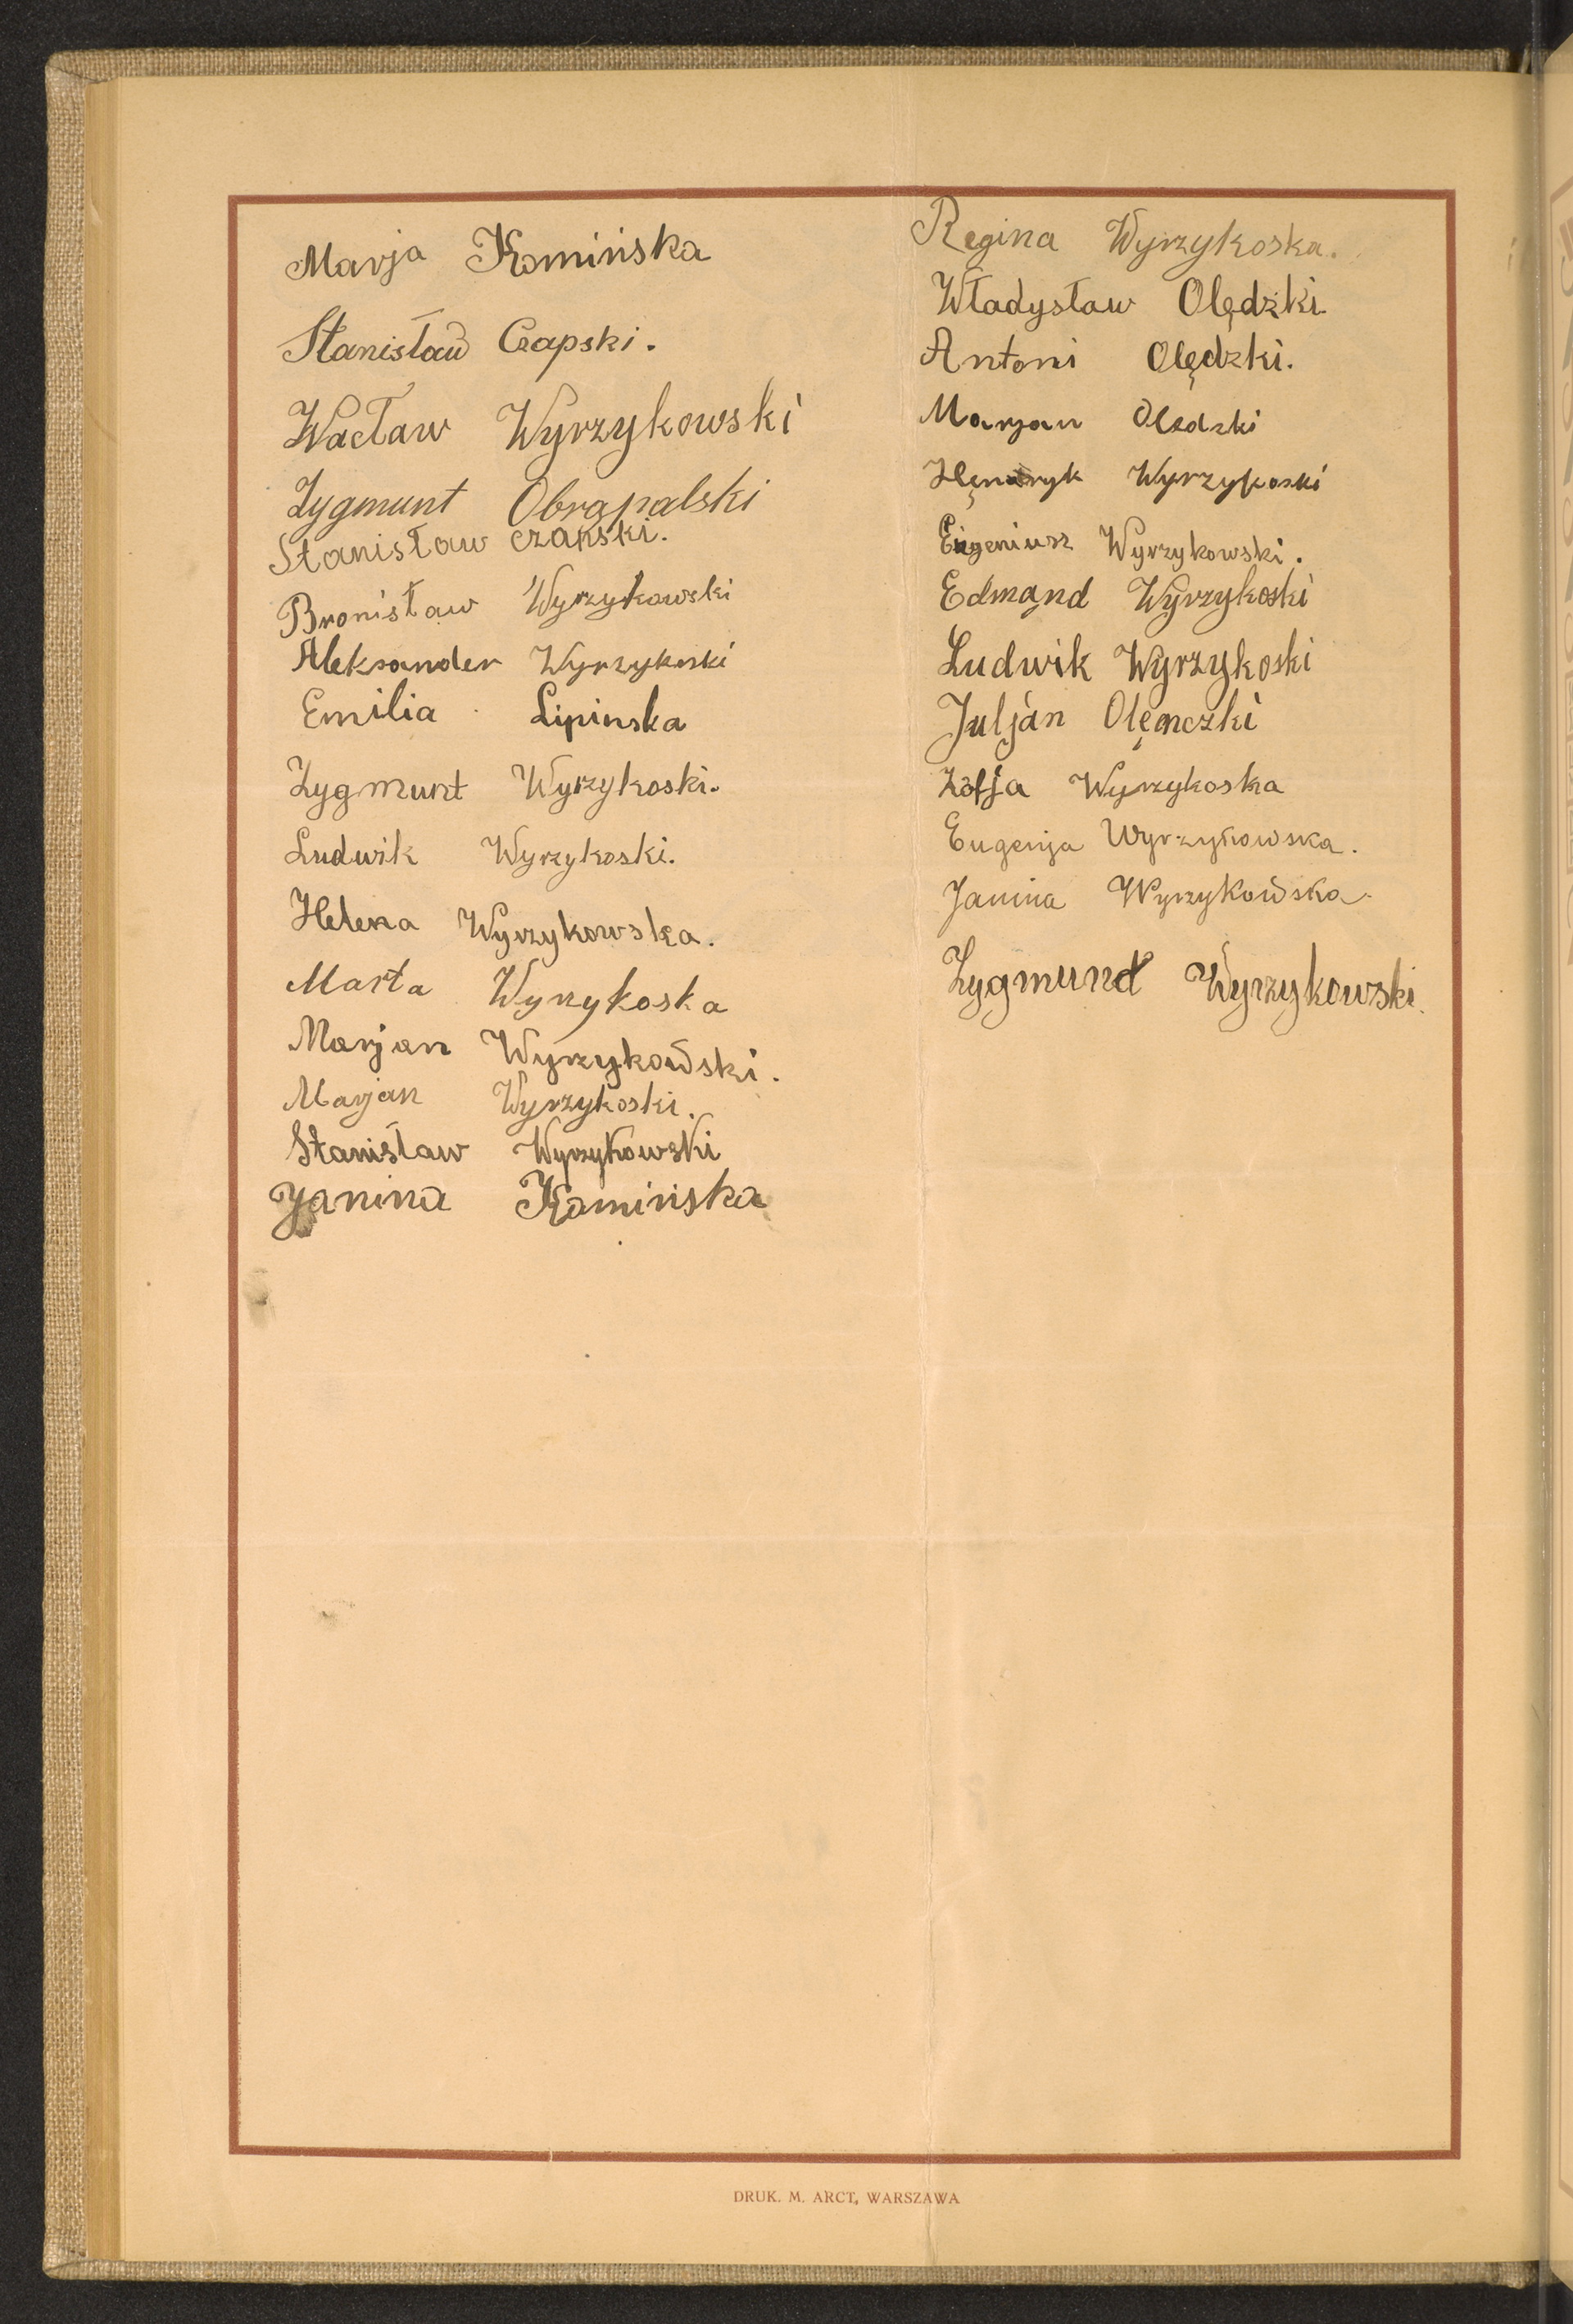 Marja Kamińska
Stanisław Czapski.
Wacław Wyrzykowski
Zygmunt Obrąpalski
Stanisław czapski.
Bronisław Wyrzykowski
Aleksander Wyrzykoski
Emilia Lipinska
Zygmunt Wyrzykoski.
Ludwik Wyrzykoski.
Helena Wyrzykowska.
Marta Wyrzykoska
Marjan Wyrzykowski.
Marjan Wyrzykoski.
Stanisław Wyrzykowski
Janina Kamińska
Regina Wyrzykoska.
Władysław Olędzki.
Antoni Olędzki.
Marjan Oledzki
Henryk Wyrzykoski
Eugeniusz Wyrzykowski.
Edmąnd Wyrzykoski
Ludwik Wyrzykoski
Julján Olęmczki
Zofja Wyrzykoska
Eugenja Wyrzykowska.
Janina Wyrzykowska.
Zygmund Wyrzykowski.
DRUK. M. ARCT, WARSZAWA